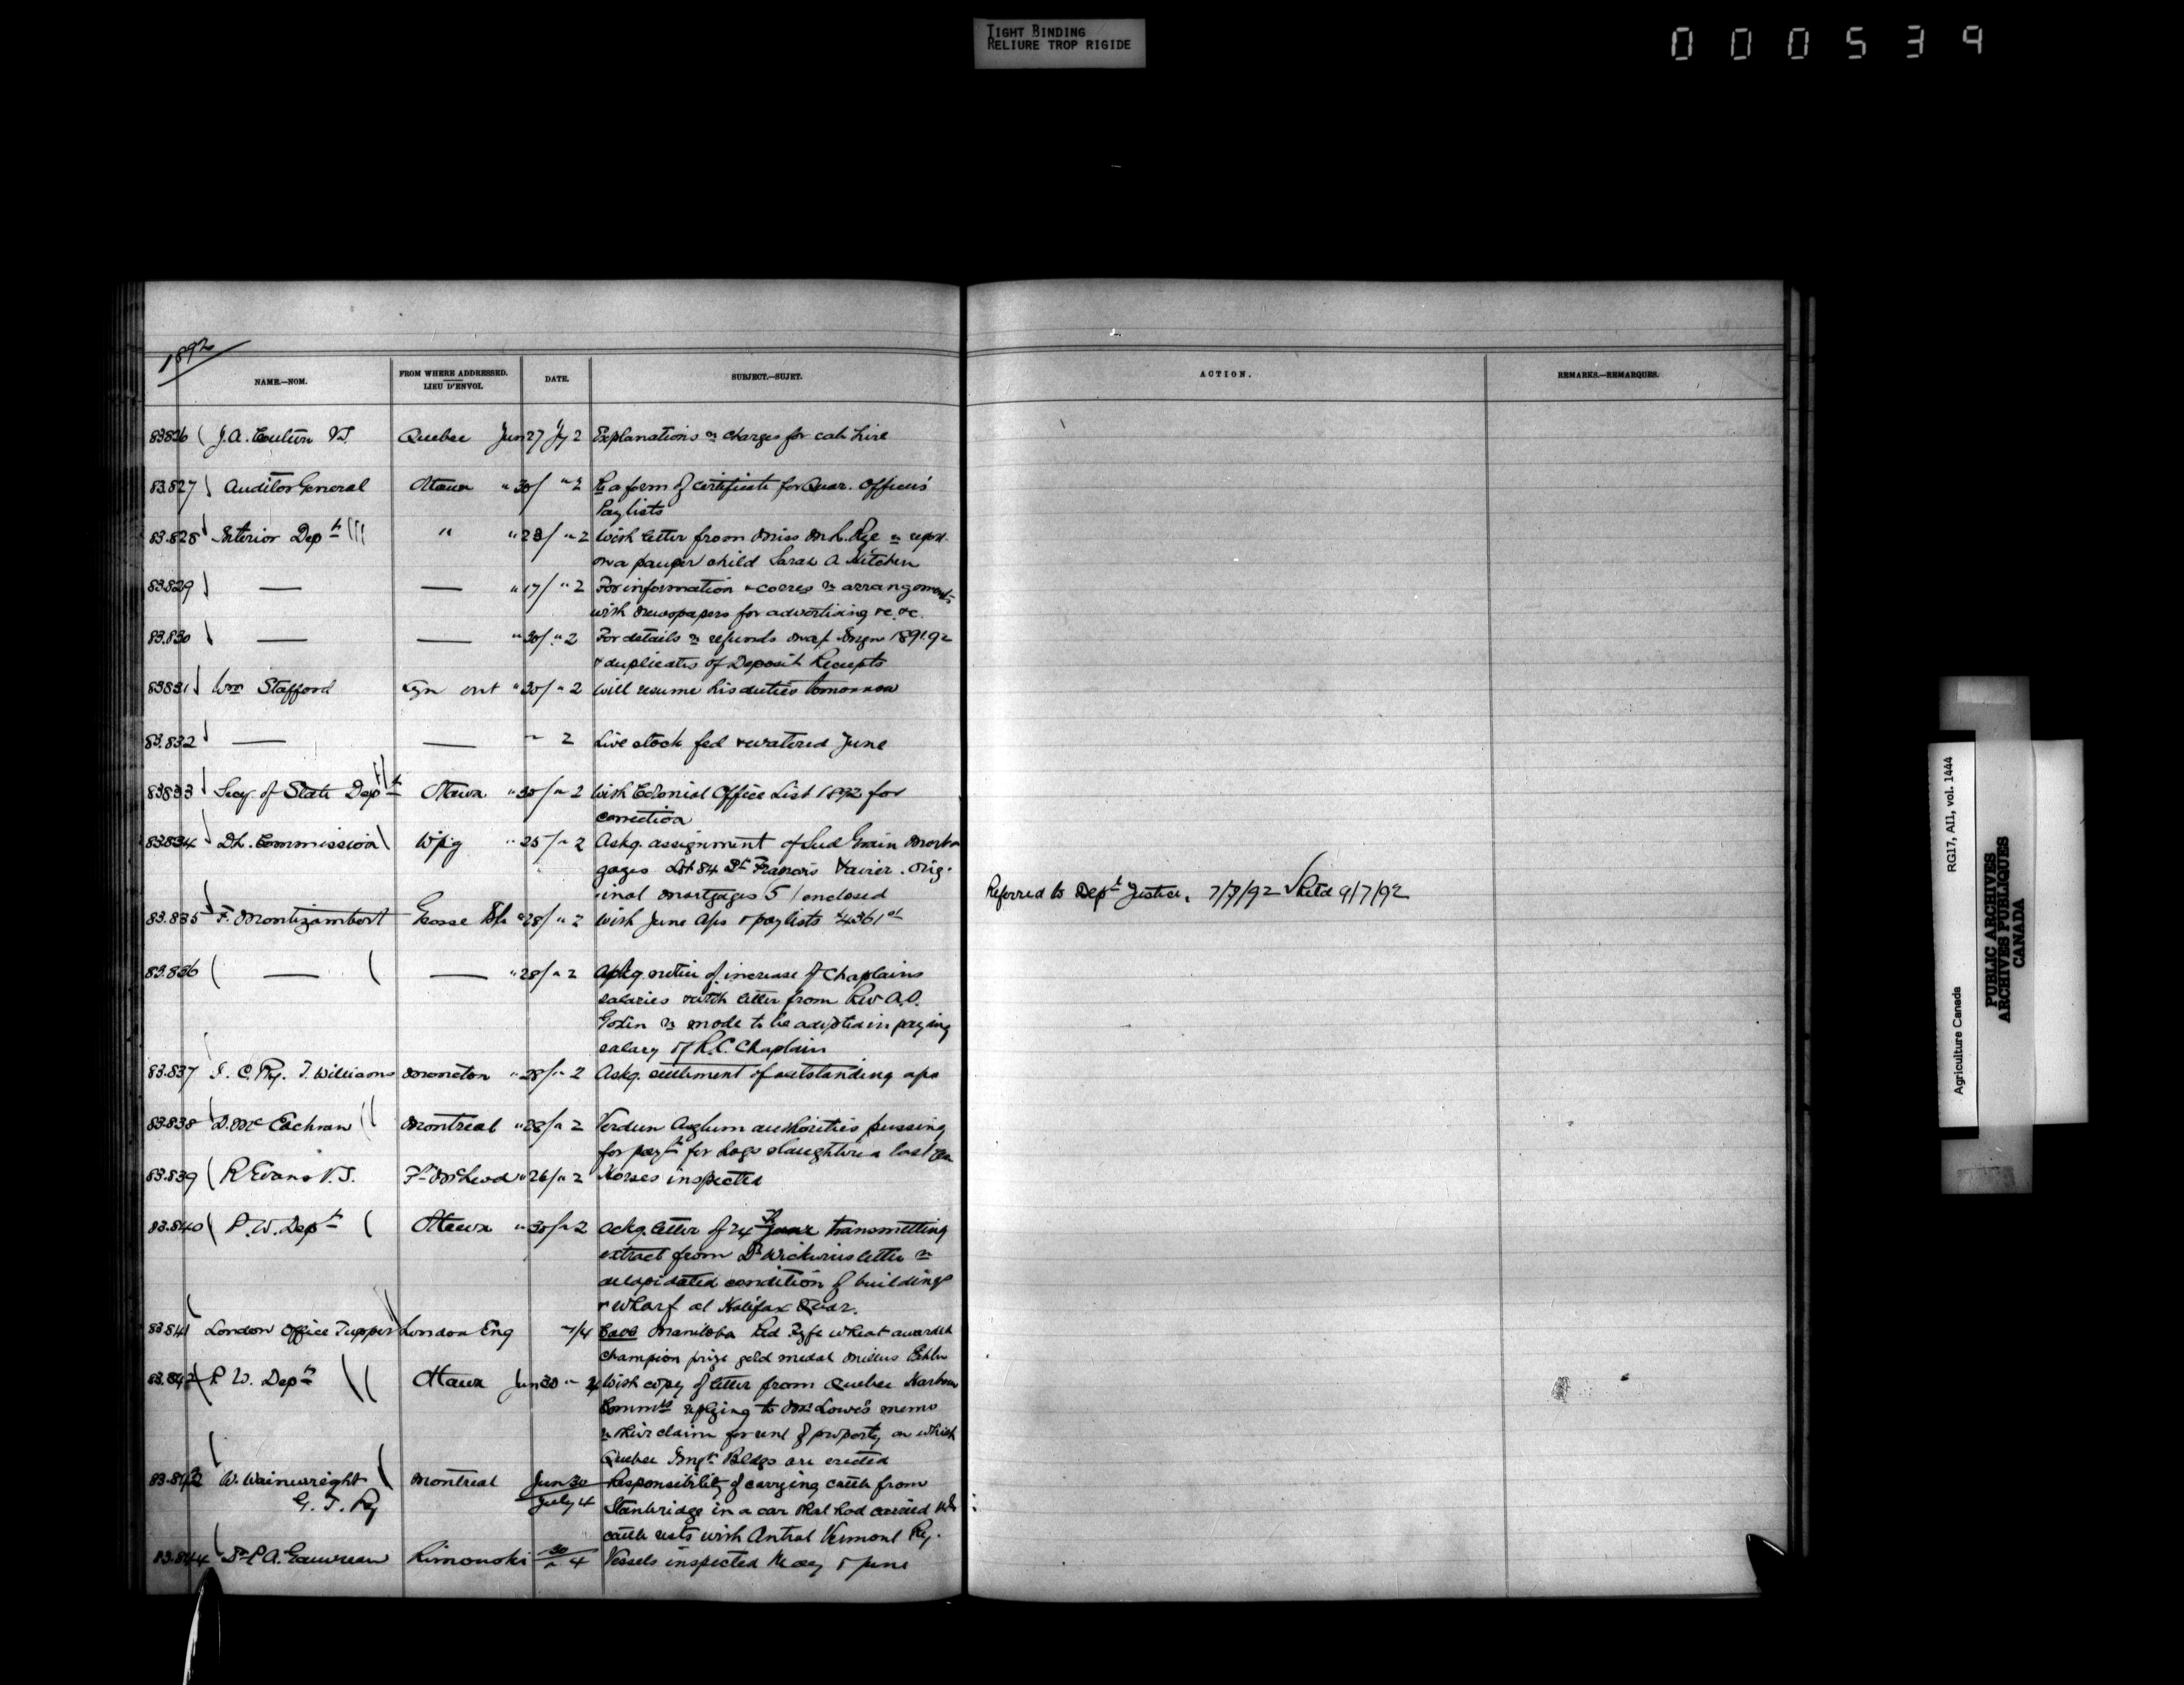 TIGHT BINDING
RELIURE TROP RIGIDE
000539
1892
NAME.—NOM. FROM WHERE ADDRESSED. LIEU D'ENVOI. DATE. SUBJECT.—SUJET. ACTION. REMARKS.—REMARQUES.
83826 J.A. Couture V.S. Quebec Jun 27 Jy 2 Explanations re charges for cab hire
83.827 Auditor General Ottawa " 30 / " 2 Re a form of certificate for Quar. Officers'
Paylists
83.828 Interior Dept " " 28 / " 2 With letter from Miss M.L. Rye re report
on a pauper child Sarah A. Kitchen
83.829 — — " 17 / " 2 For information & corres re arrangements
with newspapers for advertising &c. &c.
83.830 — — " 30 / " 2 For details re refunds 1891.92
& duplicates of Deposit Receipts
83831 Wm Stafford Lyn Ont " 30 / " 2 Will resume his duties tomorrow
83.832 — — " 2 Live stock fed & watered June
83833 Secy of State Dept Ottawa " 30 / " 2 With Colonial Office List 1892 for
correction
83834 D.L. Commission Wpg " 25 / " 2 Askg. assignment of Seed Grain Mort
gages Lot 84 St Francois Xavier. Orig-
inal mortgages (5) enclosed
Referred to Dept Justice. 7/7/92 Retd 9/7/92
83.835 F. Montizambert Grosse Isle " 28 / " 2 With June a/cs & paylists $4361
83.836 — — " 28 / " 2 Ackg. notice of increase of Chaplains
salaries & with letter from Rev A.O.
Godin re mode to be adopted in paying
salary of R.C. Chaplain
83.837 I. C. Ry. T. Williams Moncton " 28 / " 2 Askg. settlement of outstanding a/cs
83.838 D. McEachran Montreal " 28 / " 2 Verdun Asylum authorities pressing
for payt for hogs slaughtered last
83.839 R Evans V.S. Ft McLeod " 26 / " 2 Horses inspected
83.840 P.W. Dept Ottawa " 30 / " 2 Ackg. letter of 24th June transmitting
extract from Dr Wickwires letter re
delapidated condition of buildings
& wharf at Halifax Quar.
83.841 London Office Tupper London Eng " / 4 Manitoba Red Fyfe wheat awarded
champion prize gold medal Millers Exhbn
83.842 P.W. Dept Ottawa Jun 30 " 4 With copy of letter from Quebec Harbour
Commrs replying to Mr Lowe's memo
re their claim for rent of property on which
Quebec Imgn Bldgs are erected
83.843 W. Wainwright Montreal Jun 30 Responsibility of carrying cattle from
G. T. Ry July 4 Stanbridge in a car that had carried U.S.
cattle rests with Central Vermont Ry.
83.844 Dr P.A. Gauvreau Rimouski 30 / " 4 Vessels inspected May & June
Agriculture Canada RG17, AII, vol. 1444
PUBLIC ARCHIVES
ARCHIVES PUBLIQUES
CANADA